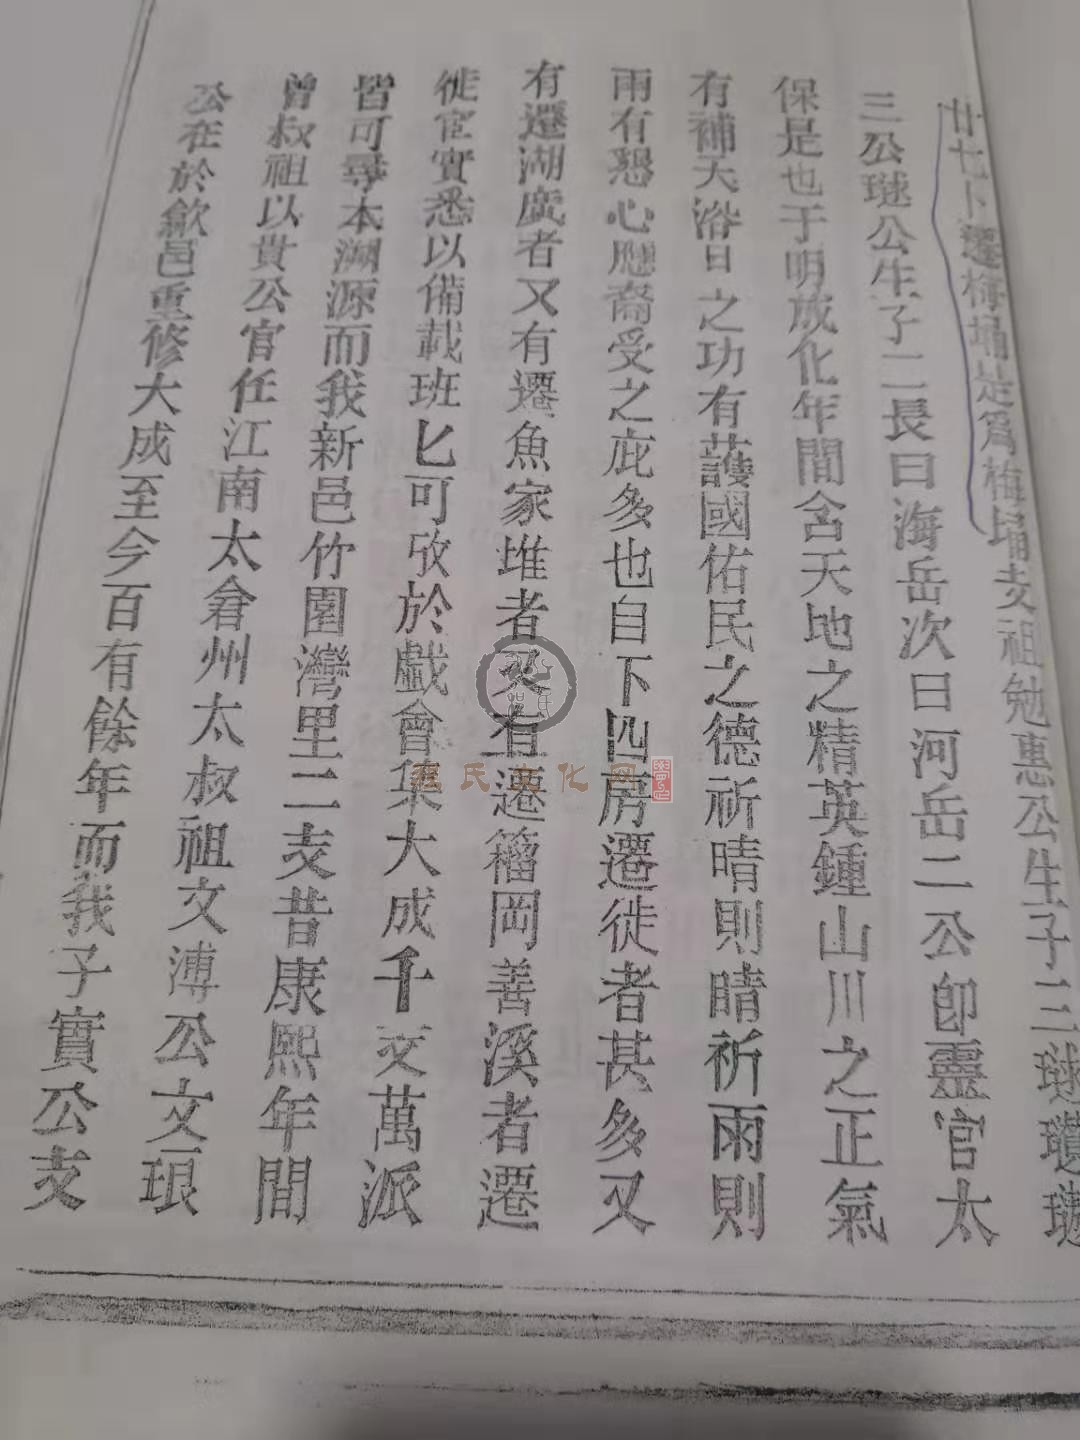 廿七卜遷梅埇是爲梅埇支祖勉惠公生子三璲瓊璲
三公璲公生子二長曰海岳次曰河岳二公卽靈官太
保是也于明成化年間含天地之精英鍾山川之正氣
有補天浴日之功有護國佑民之德祈晴則晴祈雨則
雨有懇心應裔受之庇多也自下四房遷徙者甚多又
有遷湖廣者又有遷魚家堆者又有遷籀岡善溪者遷
徙宦實悉以備載班匕可攷於戲會集大成千支萬派
皆可尋本溯源而我新邑竹園灣里二支昔康熙年間
曾叔祖以貴公官任江南太倉州太叔祖文溥公文琅
公在於歙邑重修大成至今百有餘年而我子實公支
程氏文化网